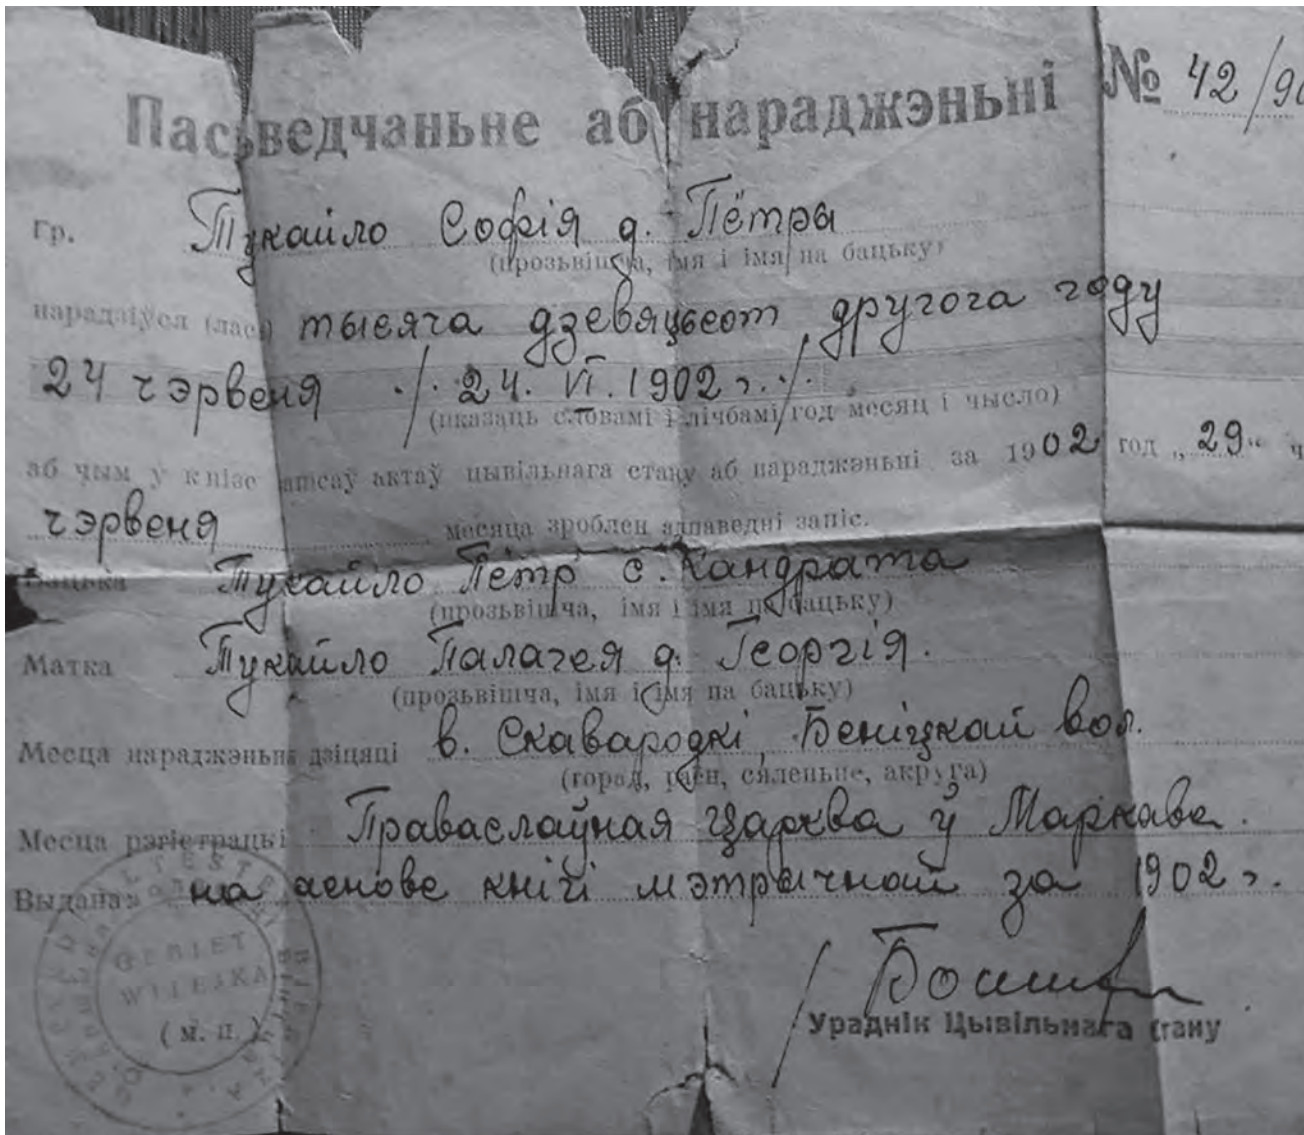 Пасьведчаньне аб нараджэньні № 42/90
Гр. Тукайло Софія д. Пётры
(прозьвішча, імя і імя на бацьку)
нарадзіўся (лася) тысяча дзевяцьсот другога году
24 чэрвеня /. 24. VI. 1902 г. /
(указаць словамі і лічбамі год месяц і чысло)
аб чым ў кнізе запісаў актаў цывільнага стану аб нараджэньні за 1902 год „29“ ч
чэрвеня месяца зроблен адпаведні запіс.
Бацька Тукайло Пётр с. Кандрата
(прозьвішча, імя і імя па бацьку)
Матка Тукайло Палагея д. Георгія.
(прозьвішча, імя і імя па бацьку)
Месца нараджэньня дзіцяці в. Скавародкі, Беніцкай вол.
(горад, раён, сяленьне, акруга)
Месца рэгістрацыі Праваслаўная царква ў Маркаве.
Выдана: на аснове кнігі мэтрычнай за 1902 г.
GEBIET
WILEJKA
(м. п.)
Ураднік Цывільнага стану